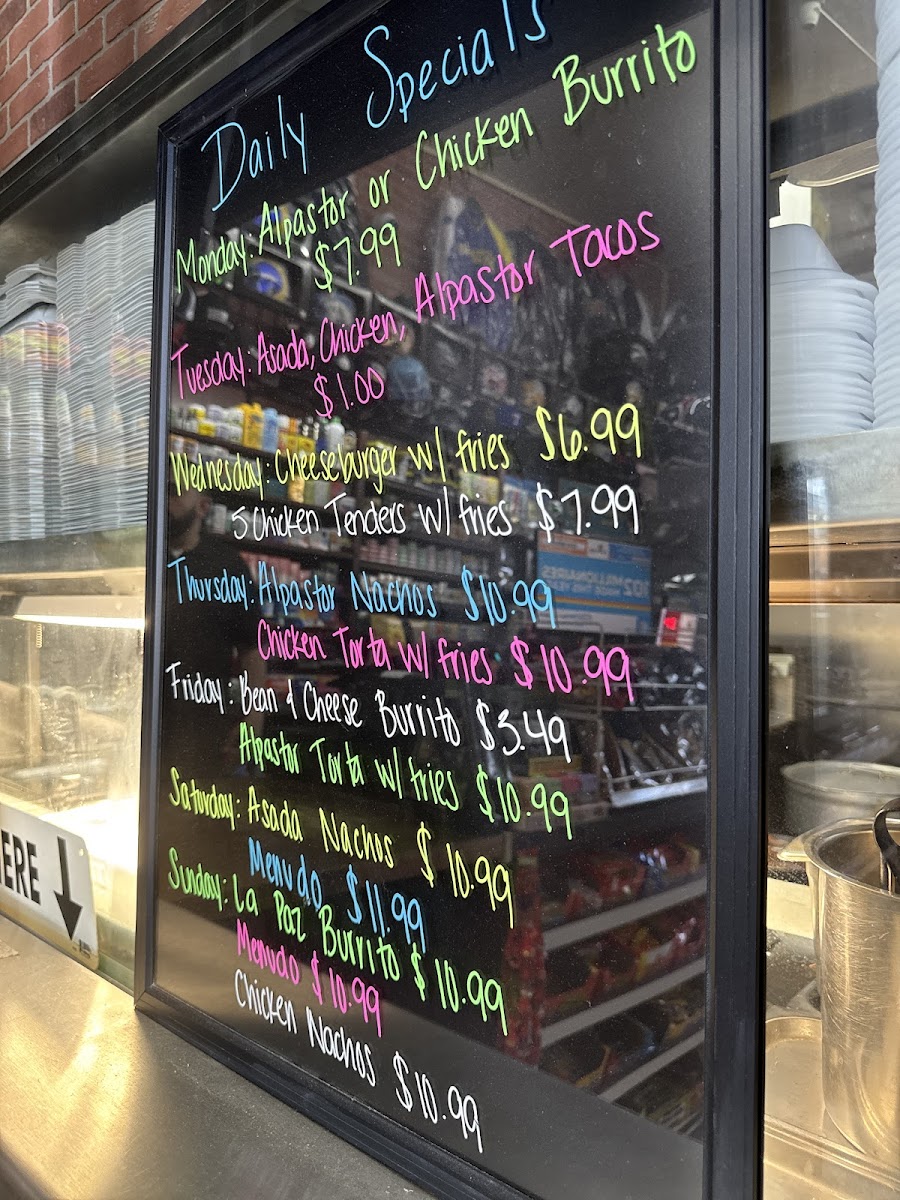 Daily Specials
Monday: Alpastor or Chicken Burrito
$7.99
Tuesday: Asada, Chicken, Alpastor Tacos
$1.00
Wednesday: Cheeseburger w/ fries $6.99
5 Chicken Tenders w/ fries $7.99
Thursday: Alpastor Nachos $10.99
Chicken Torta w/ fries $10.99
Friday: Bean & Cheese Burrito $3.49
Alpastor Torta w/ fries $10.99
Saturday: Asada Nachos $10.99
Menudo $11.99
Sunday: La Paz Burrito $10.99
Menudo $10.99
Chicken Nachos $10.99
ERE
102 MILLIONAIRES